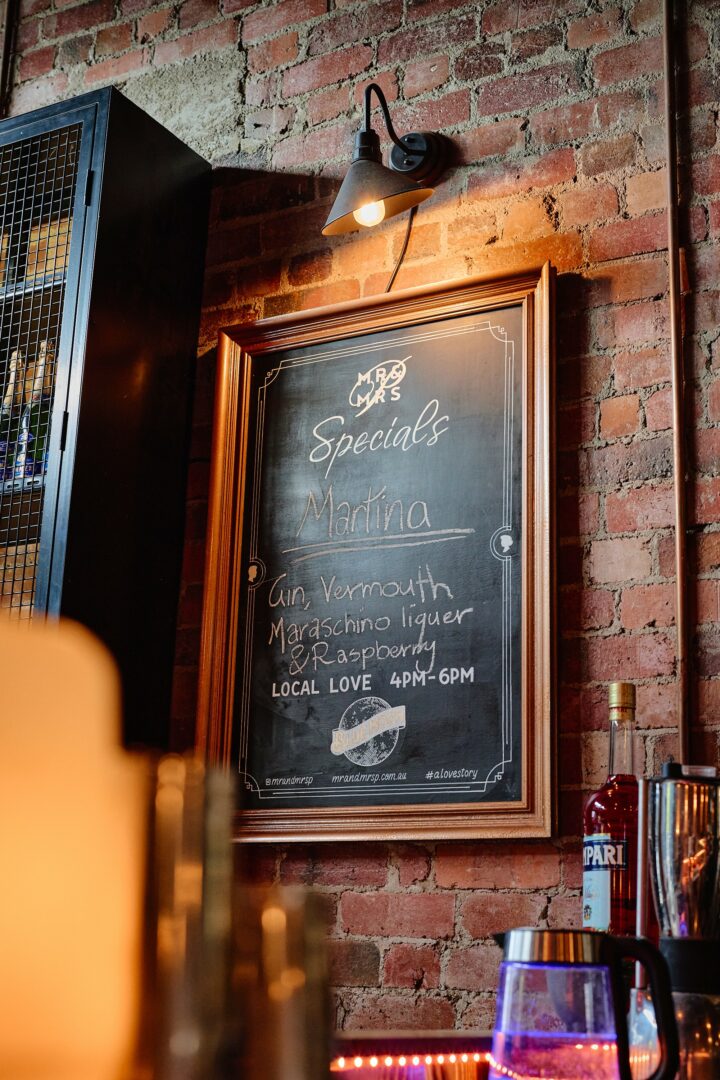 MR&
MRS
Specials
Martina
Gin, Vermouth
Maraschino liquer
& Raspberry
LOCAL LOVE 4PM-6PM
@mrandmrsp mrandmrsp.com.au #alovestory
MPARI